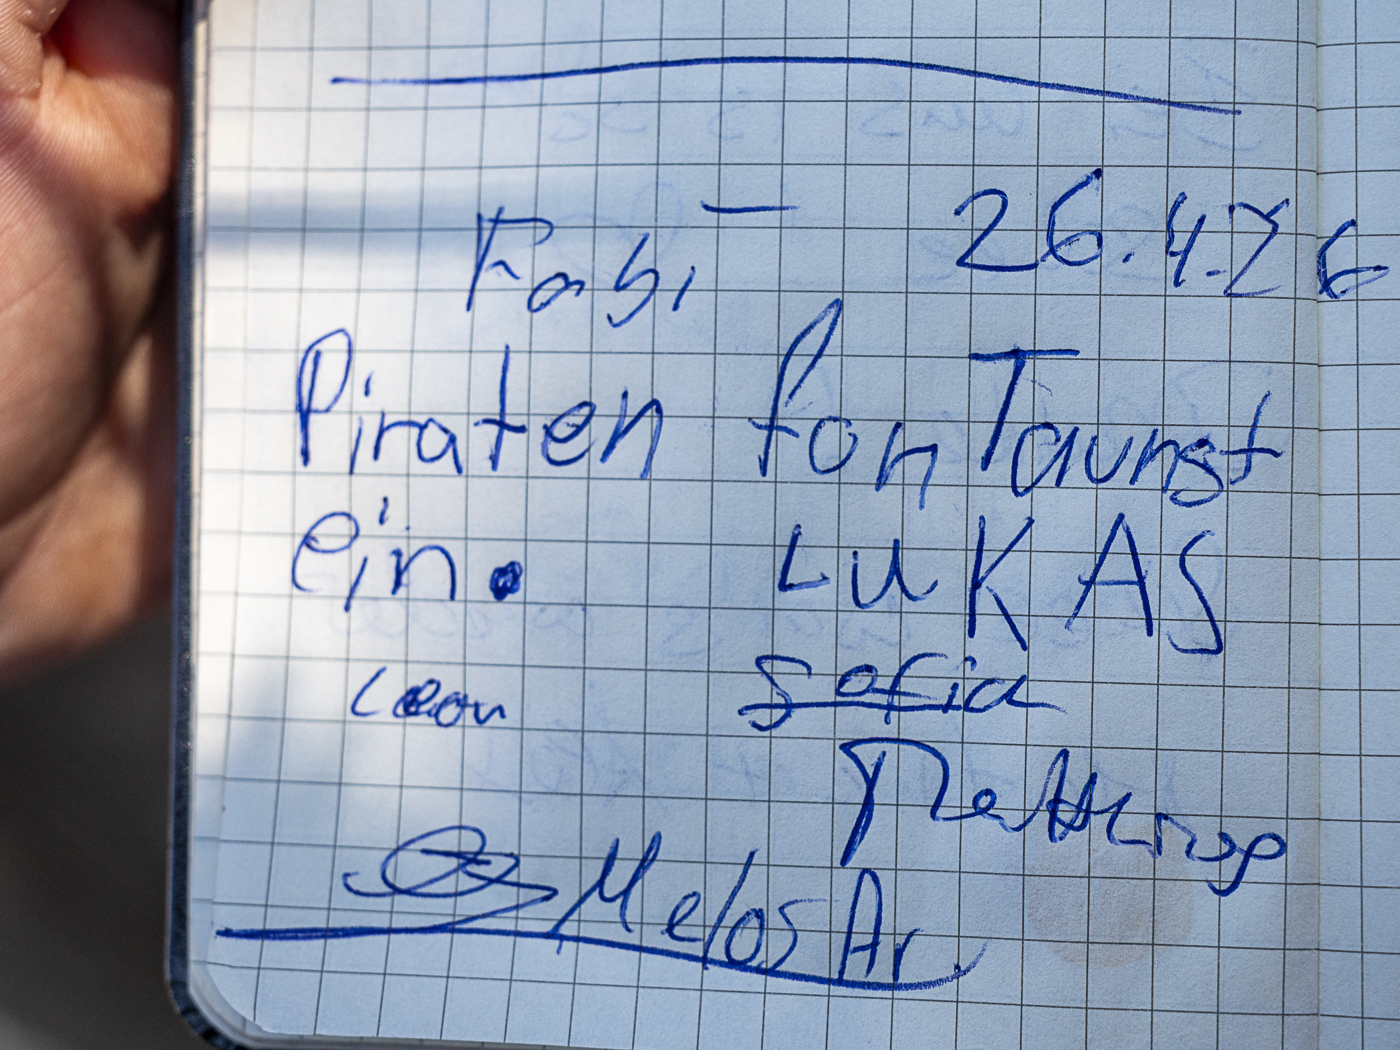 Fabi – 26.4.26
Piraten fon Taunst
ein. LUKAS
Leon sofia
Melos Ar